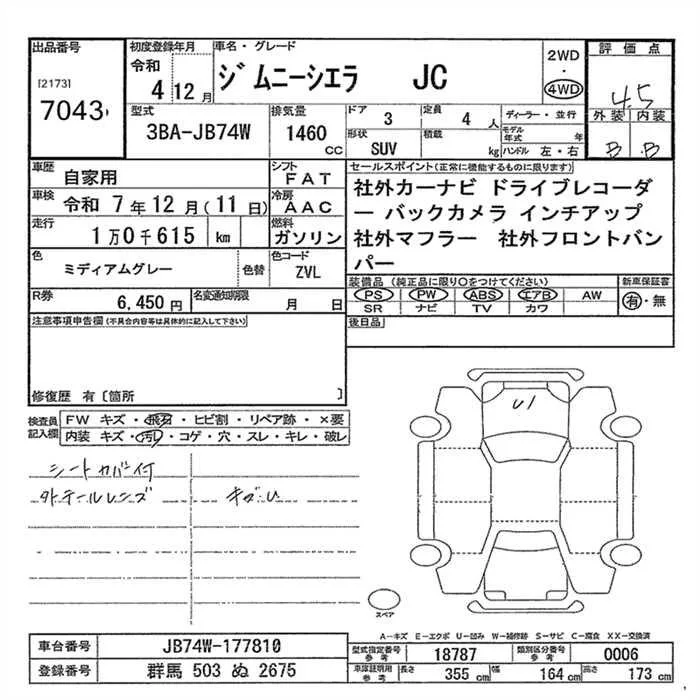 出品番号
[2173]
7043
初度登録年月
令和
4 12 月
車名・グレード
ジムニーシエラ JC
2WD
・
4WD
評価点
4.5
外装 内装
B B
型式
3BA-JB74W
排気量
1460
CC
ドア 3
定員 4 人
形状 SUV
積載 kg
ディーラー・並行
モデル年式 年
ハンドル 左・右
車歴 自家用
シフト FAT
車検 令和 7年12月(11日)
冷房 AAC
走行 1万0千615 km
燃料 ガソリン
色 ミディアムグレー
色替
色コード ZVL
R券 6,450 円
名変通知期限 月 日
セールスポイント(正常に機能するものに限ります)
社外カーナビ ドライブレコーダ
ー バックカメラ インチアップ
社外マフラー 社外フロントバン
パー
装備品 (純正品に限り○をつけてください)
新車保証書
PS PW ABS エアB AW
有・無
SR ナビ TV カワ
後日品
注意事項申告欄(不具合内容等は具体的に記入して下さい)
修復歴 有〔箇所 〕
検査員
記入欄
FW キズ・飛石・ヒビ割・リペア跡・×要
内装 キズ・汚れ・コゲ・穴・スレ・キレ・破レ
シートカバー付
外テールレンズ キズU
U1
スペア
A－キズ E－エクボ U－凹み W－補修跡 S－サビ C－腐食 XX－交換済
車台番号 JB74W-177810
登録番号 群馬 503 ぬ 2675
型式指定番号
参考
18787
類別区分番号
参考
0006
車庫証明用
参考
長さ 355 cm
幅 164 cm
高さ 173 cm